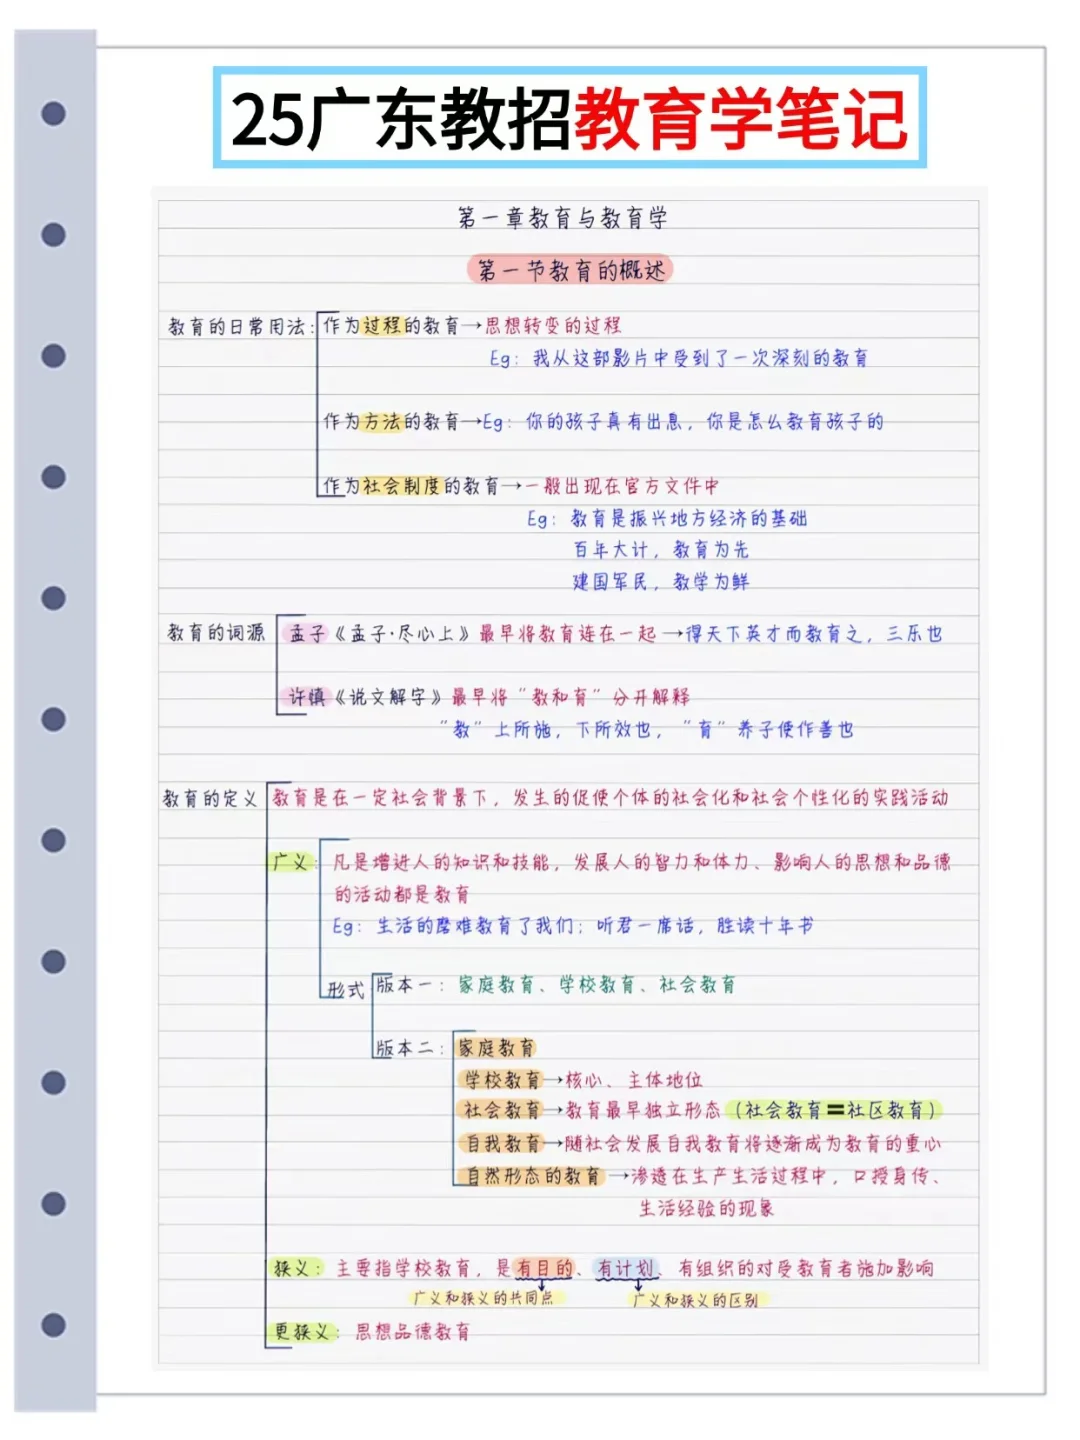 25广东教招教育学笔记
第一章教育与教育学
第一节教育的概述
教育的日常用法：作为过程的教育→思想转变的过程
Eg：我从这部影片中受到了一次深刻的教育
作为方法的教育→Eg：你的孩子真有出息，你是怎么教育孩子的
作为社会制度的教育→一般出现在官方文件中
Eg：教育是振兴地方经济的基础
百年大计，教育为先
建国军民，教学为鲜
教育的词源 孟子《孟子·尽心上》最早将教育连在一起→得天下英才而教育之，三乐也
许慎《说文解字》最早将“教和育”分开解释
“教”上所施，下所效也，“育”养子使作善也
教育的定义 教育是在一定社会背景下，发生的促使个体的社会化和社会个性化的实践活动
广义：凡是增进人的知识和技能，发展人的智力和体力、影响人的思想和品德
的活动都是教育
Eg：生活的磨难教育了我们；听君一席话，胜读十年书
形式 版本一：家庭教育、学校教育、社会教育
版本二：家庭教育
学校教育→核心、主体地位
社会教育→教育最早独立形态（社会教育=社区教育）
自我教育→随社会发展自我教育将逐渐成为教育的重心
自然形态的教育→渗透在生产生活过程中，口授身传、
生活经验的现象
狭义：主要指学校教育，是有目的、有计划、有组织的对受教育者施加影响
广义和狭义的共同点 广义和狭义的区别
更狭义：思想品德教育